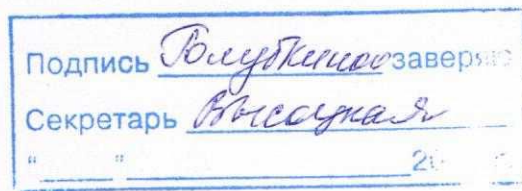 Подпись Голубкиной заверяю
Секретарь Высоцкая
"____" ____________ 20